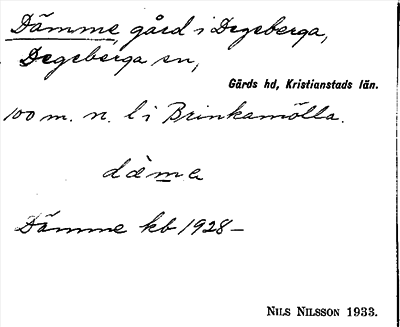 Dämme, gård i Degeberga,
Degeberga sn,
Gärds hd, Kristianstads län.
100 m. n. l i Brinkamölla.
däma
Dämme kb 1928–
NILS NILSSON 1933.